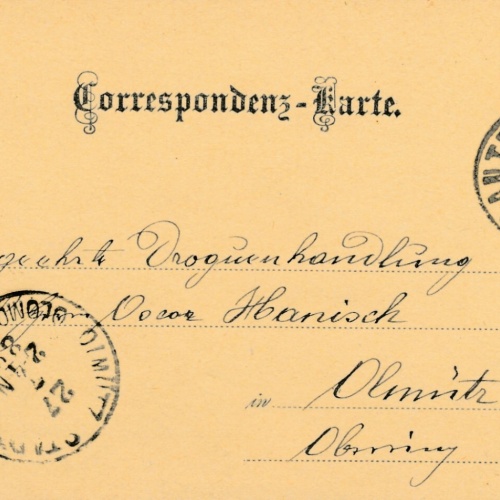 Correspondenz-Karte.
geehrte Droguenhandlung
Oscar Hanisch
in Olmütz
Obrring
OLMÜTZ STADT